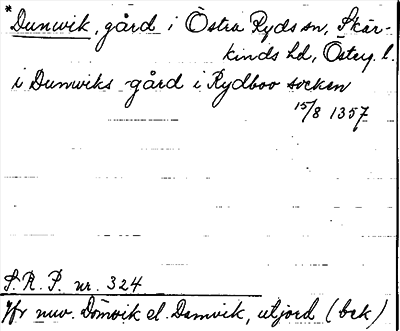 *Dunwik, gård i Östra Ryds sn, Skär-
kinds hd, Österg. l.
i Dunwiks gård i Rydboo socken
15/8 1357
S. R. P. nr. 324
Jfr nuv. Domvik el. Damvik, utjord (bsk)